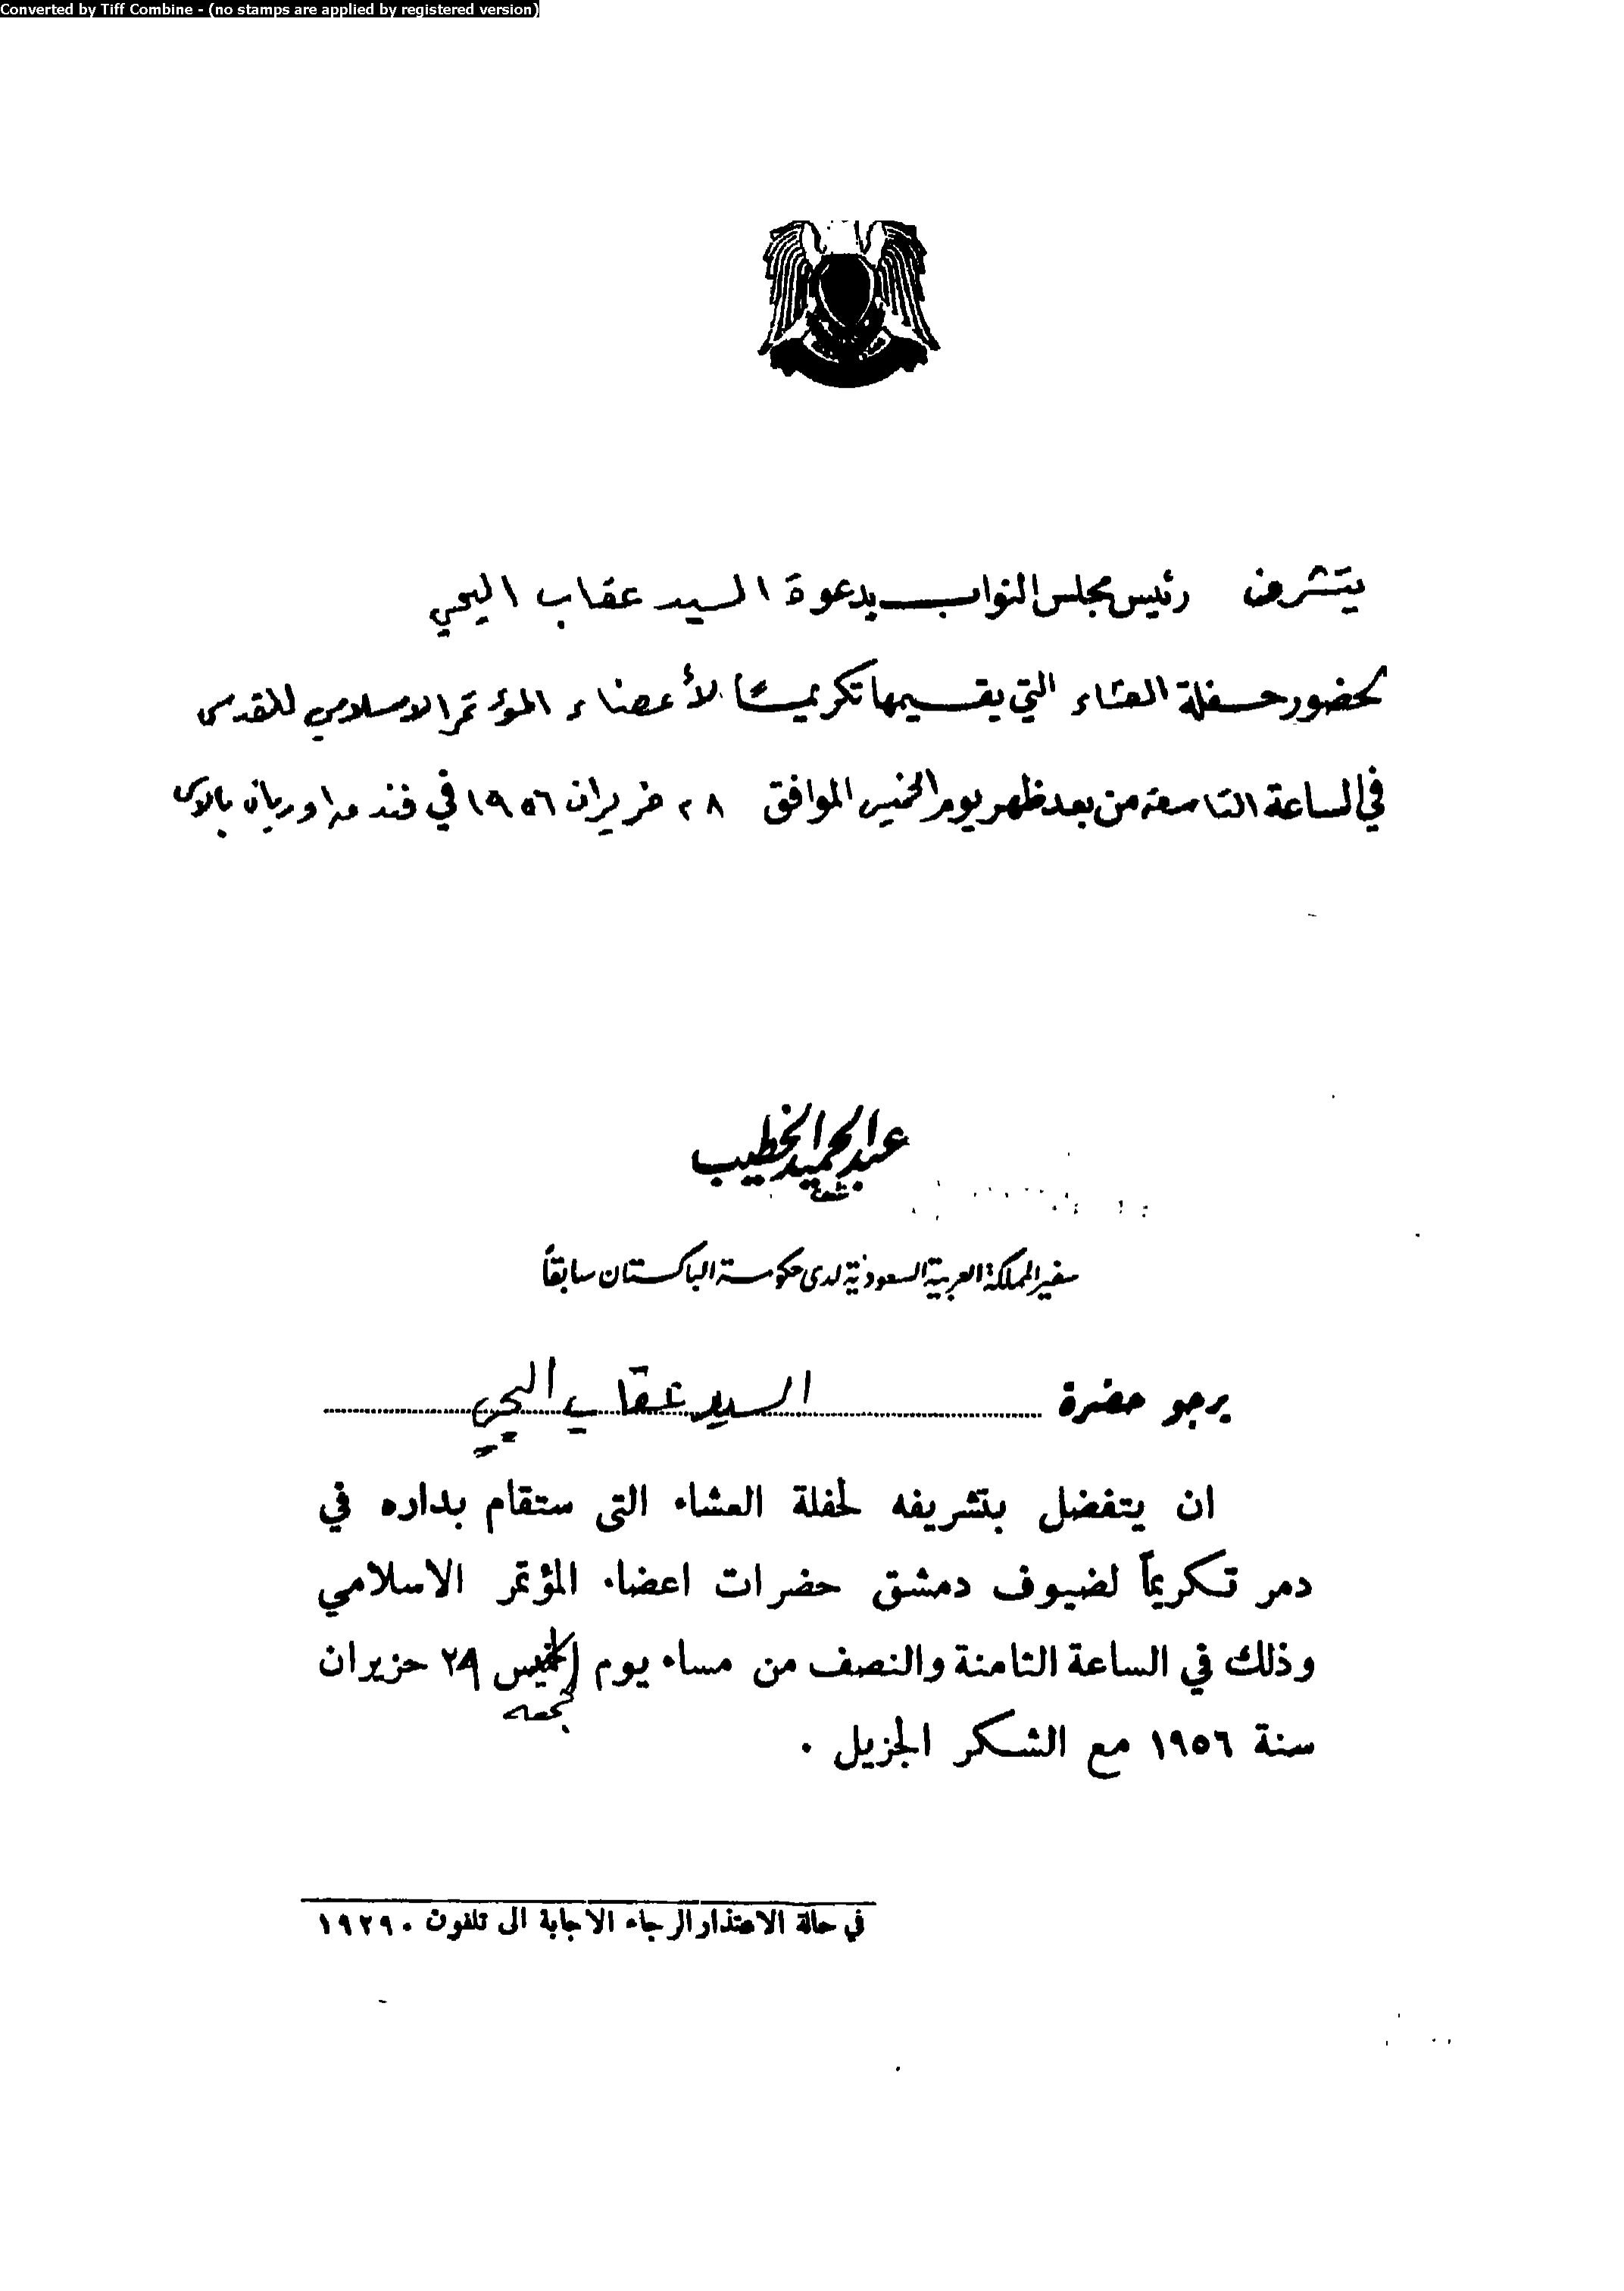 Converted by Tiff Combine - (no stamps are applied by registered version)
يتشرف رئيس مجلس النواب بدعوة السيد عقاب اليحيى
لحضور حفلة العشاء التي يقيمها تكريمًا لأعضاء المؤتمر الاسلامي للقدس
في الساعة التاسعة من بعد ظهر يوم الخميس الموافق ٢٨ حزيران ١٩٥٦ في فندق اوريان بالاس
عبد الحميد الخطيب
سفير المملكة العربية السعودية لدى حكومة الباكستان سابقاً
يرجو حضرة السيد عقاب اليحيى
ان يتفضل بتشريفه لحفلة العشاء التى ستقام بداره في
دمر تكريماً لضيوف دمشق حضرات اعضاء المؤتمر الاسلامي
وذلك في الساعة الثامنة والنصف من مساء يوم الخميس ٢٩ حزيران
الجمعة
سنة ١٩٥٦ مع الشكر الجزيل .
في حالة الاعتذار الرجاء الاجابة الى تلفون ١٩٢٩٠